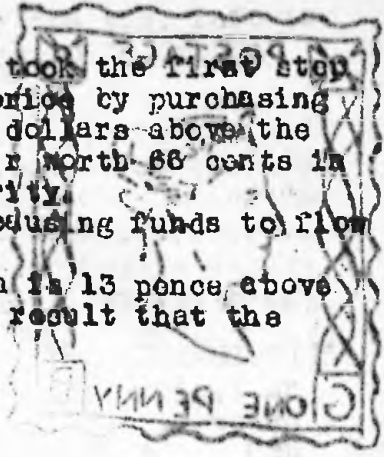 took the first step
price by purchasing
dollars above the
r worth 66 cents in
rity.
causing funds to flow
n is 13 pence above
result that the
POSTAG
ONE PENNY